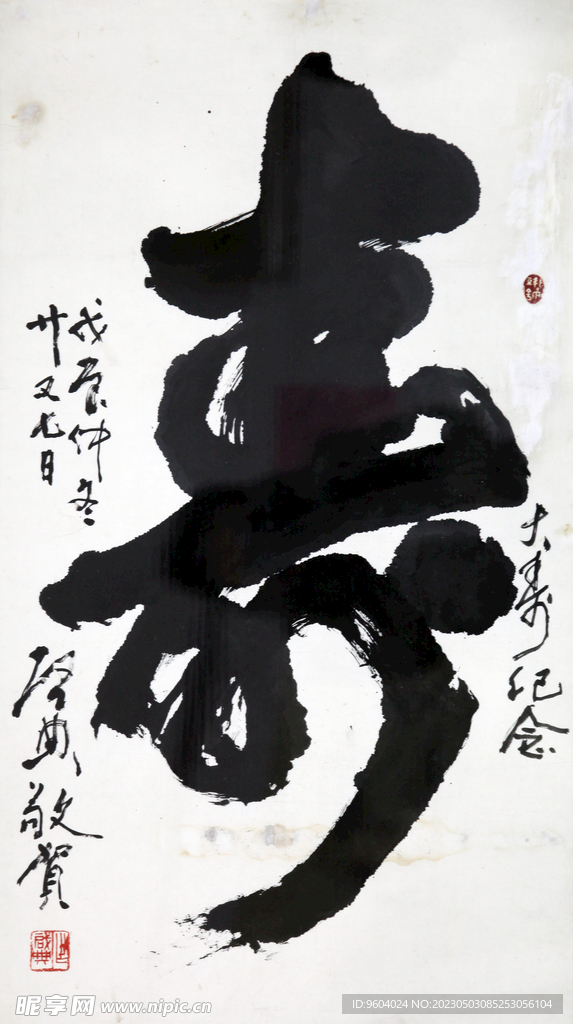 大寿纪念
寿
戊辰仲冬
廿又七日
启典敬贺
昵享网 www.nipic.cn
ID:9604024 NO:20230503085253056104